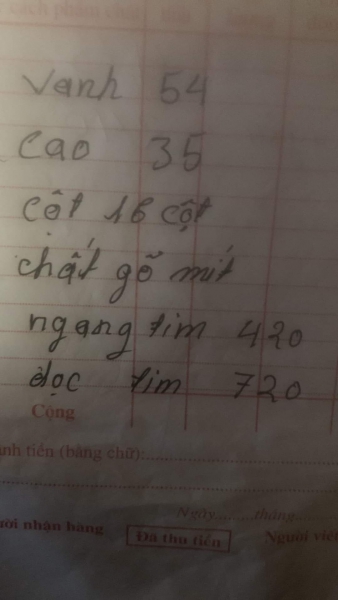 cách phẩm chất
Vanh 54
cao 35
cột 16 cột
chất gỗ mít
ngang tim 420
dọc tim 720
Cộng
ành tiền (bằng chữ):
Ngày.........tháng
ười nhận hàng
Đã thu tiền
Người viế